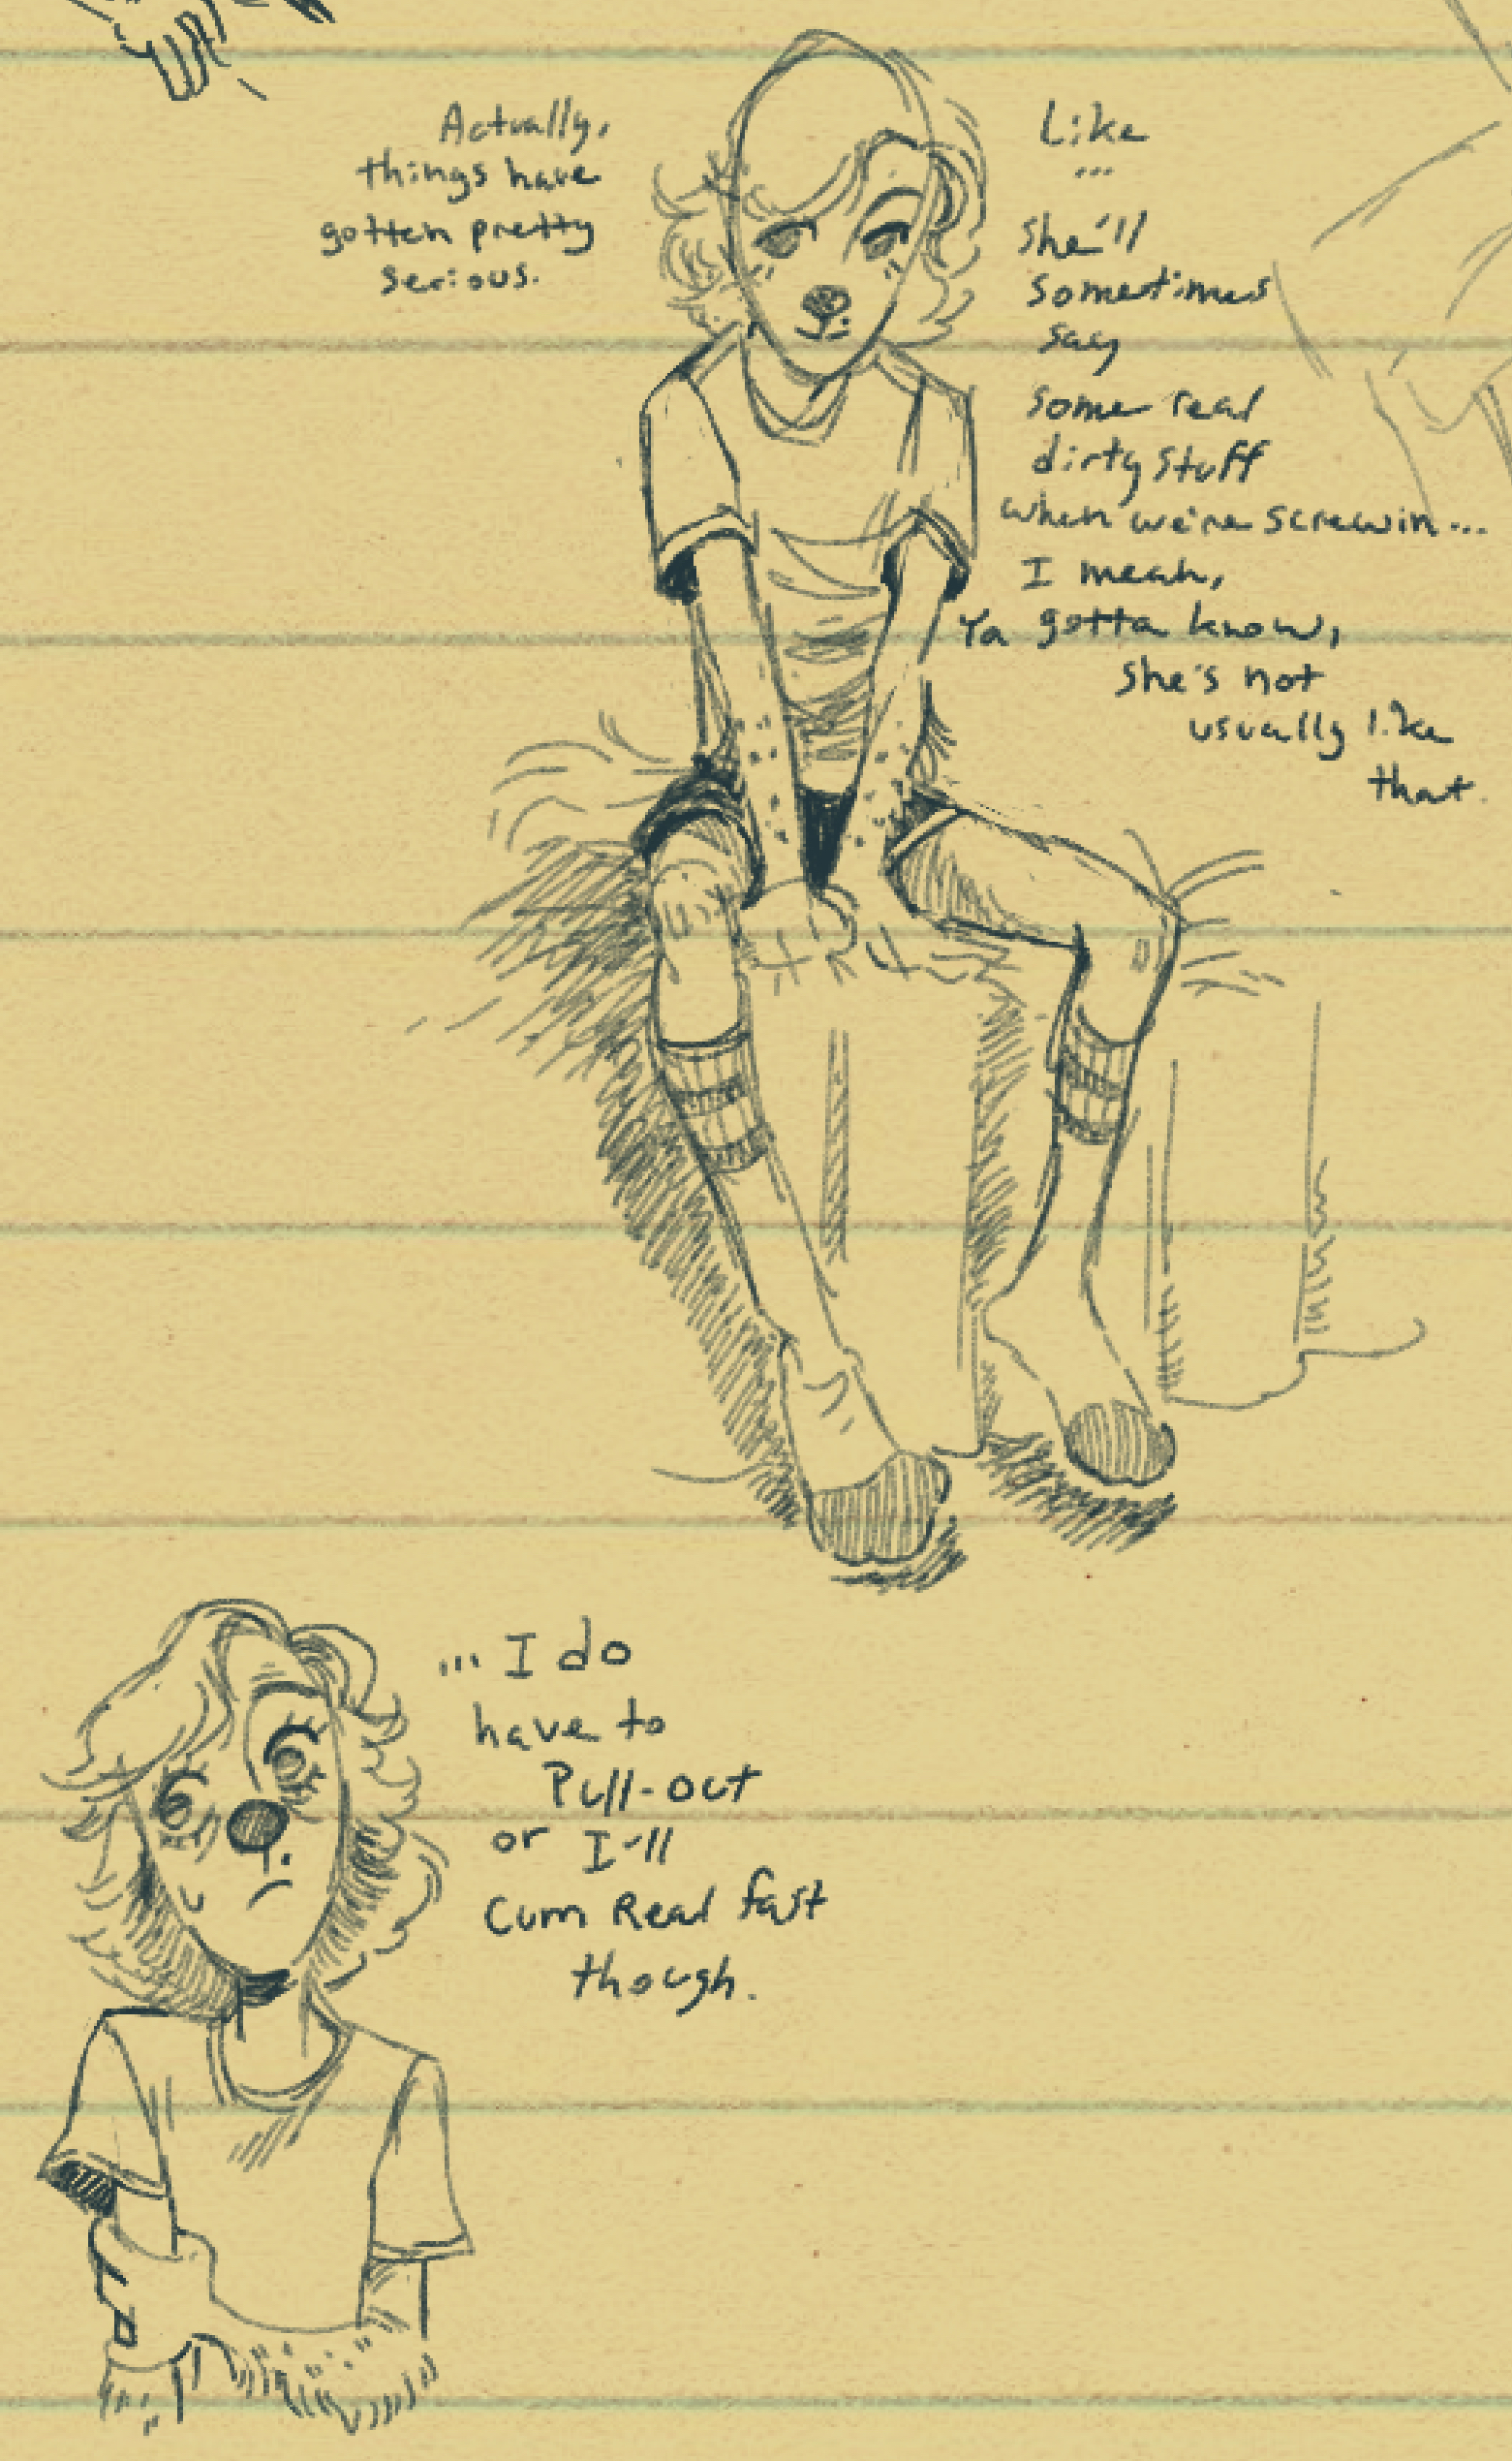 Actually,
things have
gotten pretty
serious.
Like
...
she'll
sometimes
say
some real
dirty stuff
when we're screwin...
I mean,
Ya gotta know,
she's not
usually like
that.
... I do
have to
Pull-out
or I'll
Cum Real fast
though.